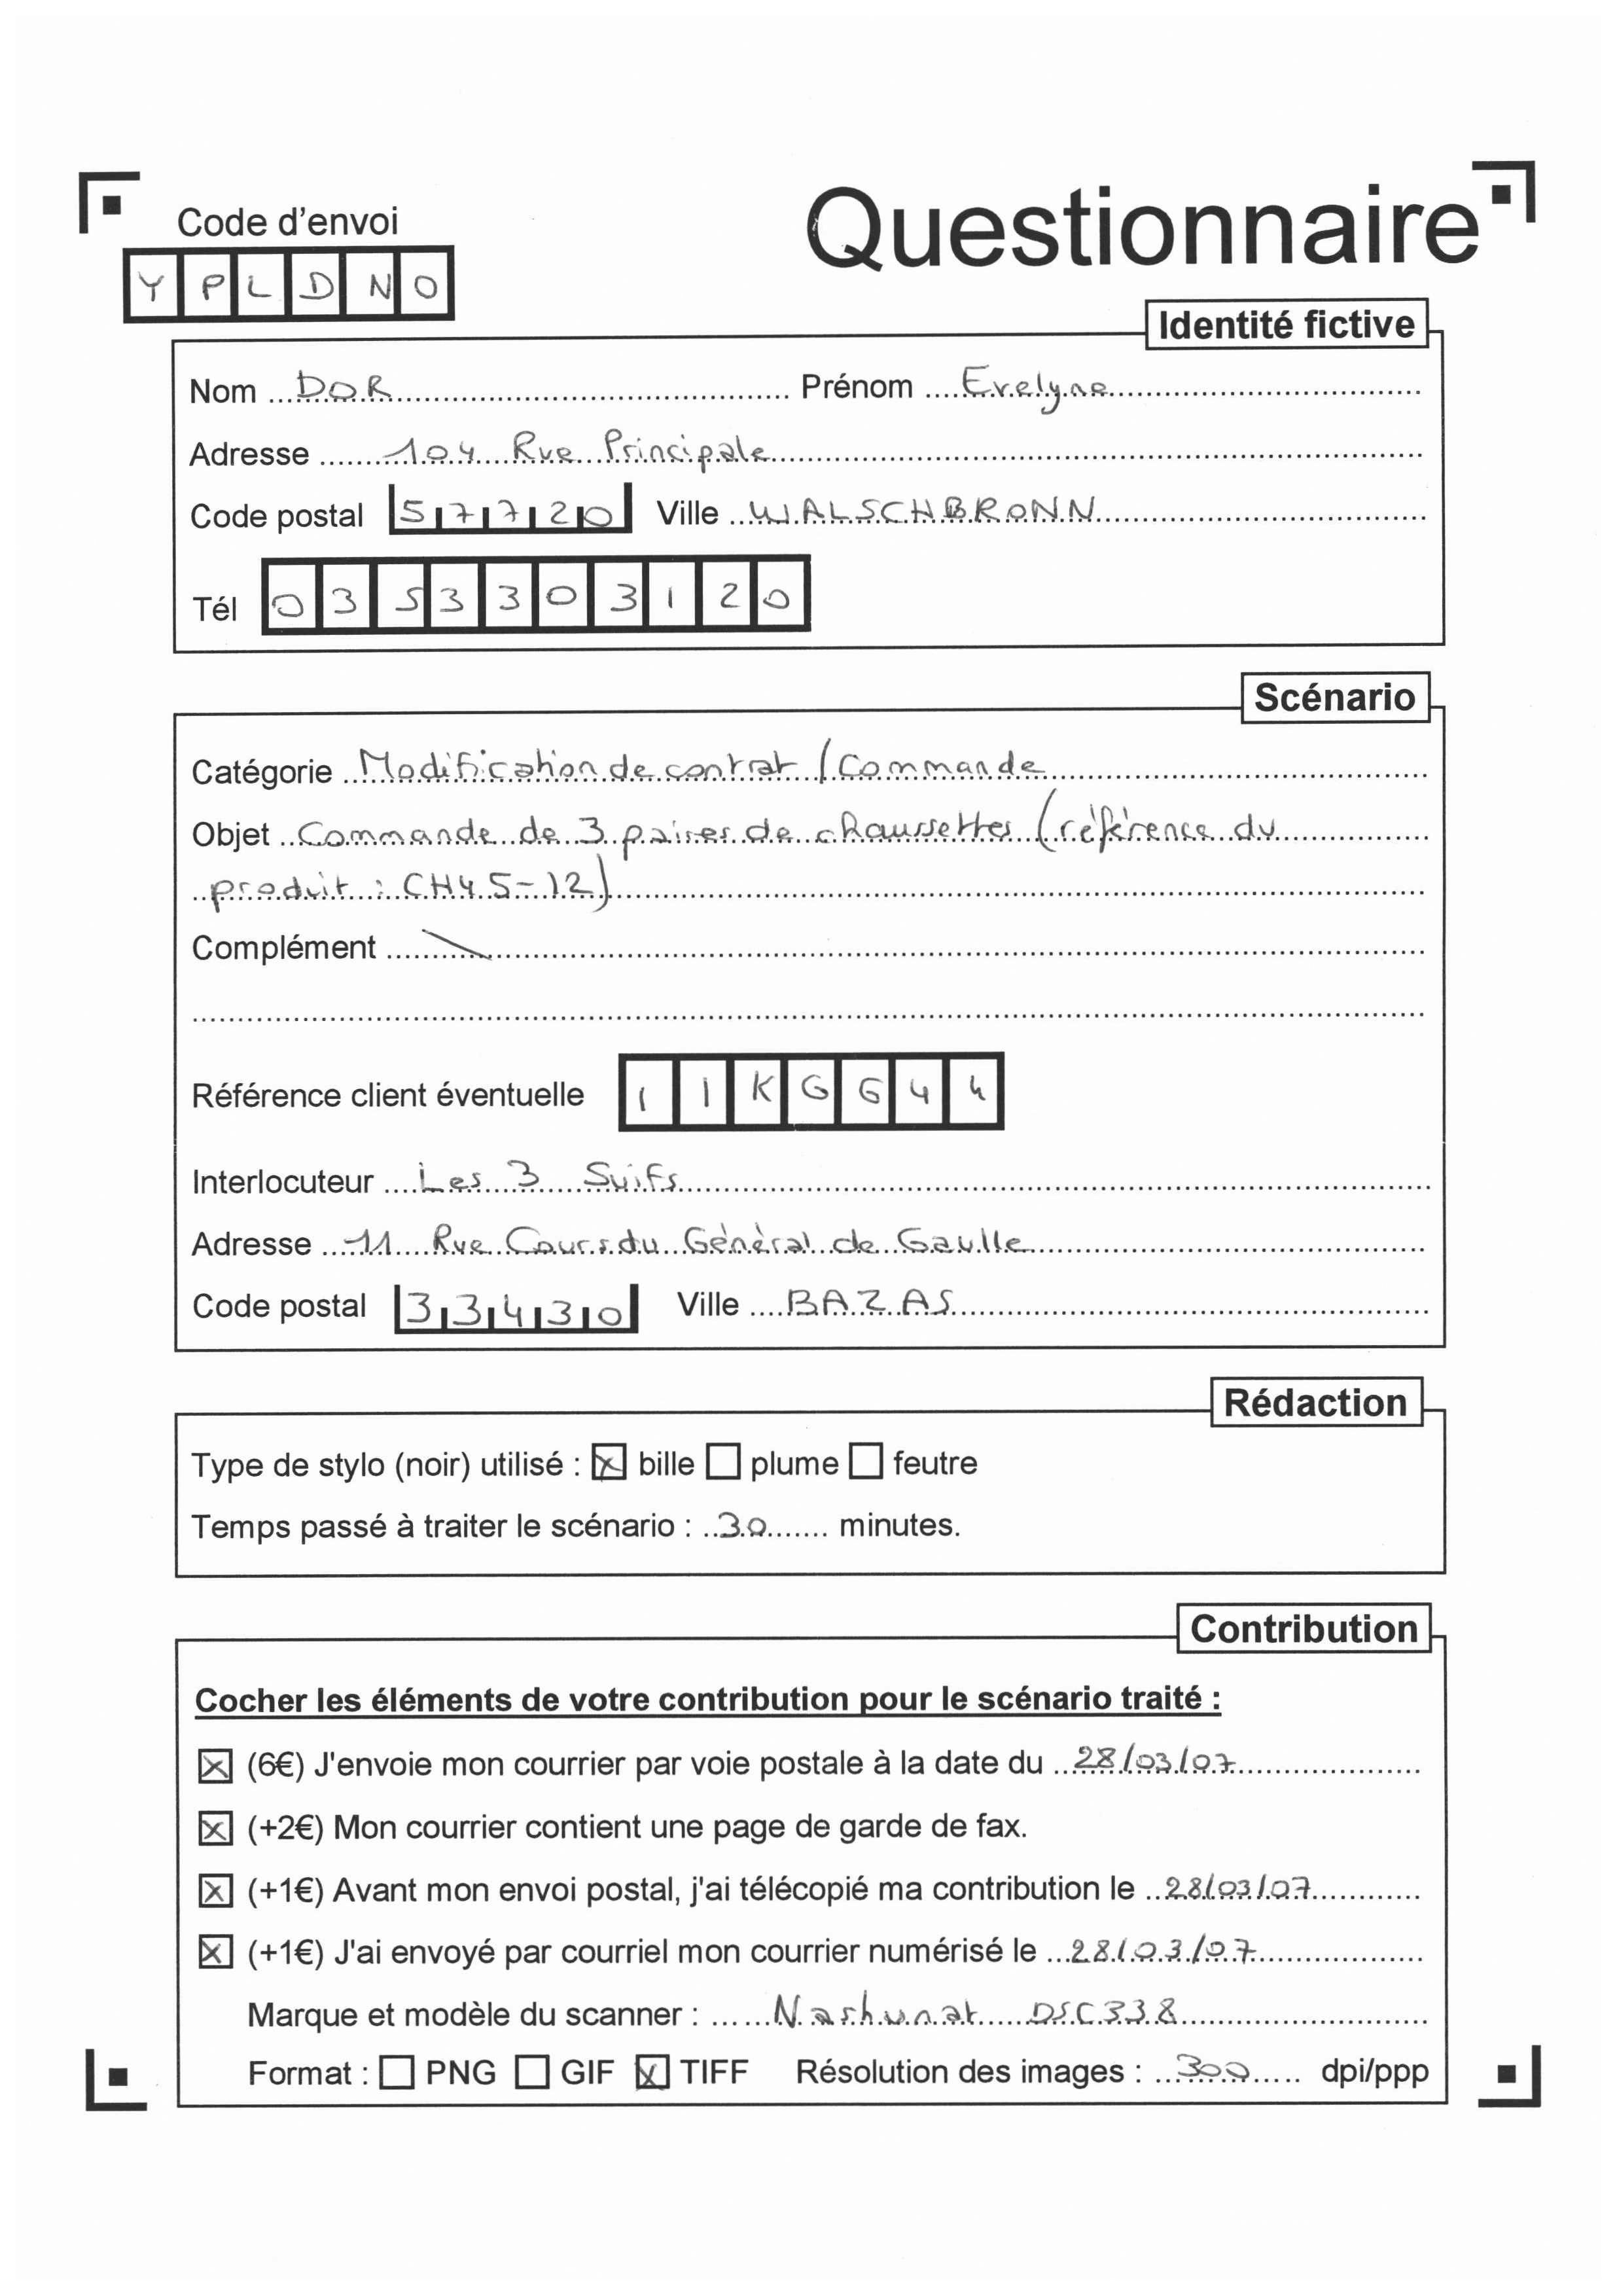 Code d'envoi
Questionnaire
Y P L D N O
Identité fictive
Nom DOR Prénom Evelyne
Adresse 104 Rue Principale
Code postal 57720 Ville WALSCHBRONN
Tél 0353303120
Scénario
Catégorie Modification de contrat / Commande
Objet Commande de 3 paires de chaussettes (référence du
produit : CH45-12)
Complément \
Référence client éventuelle 11KGG44
Interlocuteur Les 3 Suifs
Adresse 11 Rue Cours du Général de Gaulle
Code postal 33430 Ville BAZAS
Rédaction
Type de stylo (noir) utilisé : ☒ bille ☐ plume ☐ feutre
Temps passé à traiter le scénario : 30 minutes.
Contribution
Cocher les éléments de votre contribution pour le scénario traité :
☒ (6€) J'envoie mon courrier par voie postale à la date du 28/03/07
☒ (+2€) Mon courrier contient une page de garde de fax.
☒ (+1€) Avant mon envoi postal, j'ai télécopié ma contribution le 28/03/07
☒ (+1€) J'ai envoyé par courriel mon courrier numérisé le 28/03/07
Marque et modèle du scanner : Nashunat DSC338
Format : ☐ PNG ☐ GIF ☒ TIFF Résolution des images : 300 dpi/ppp